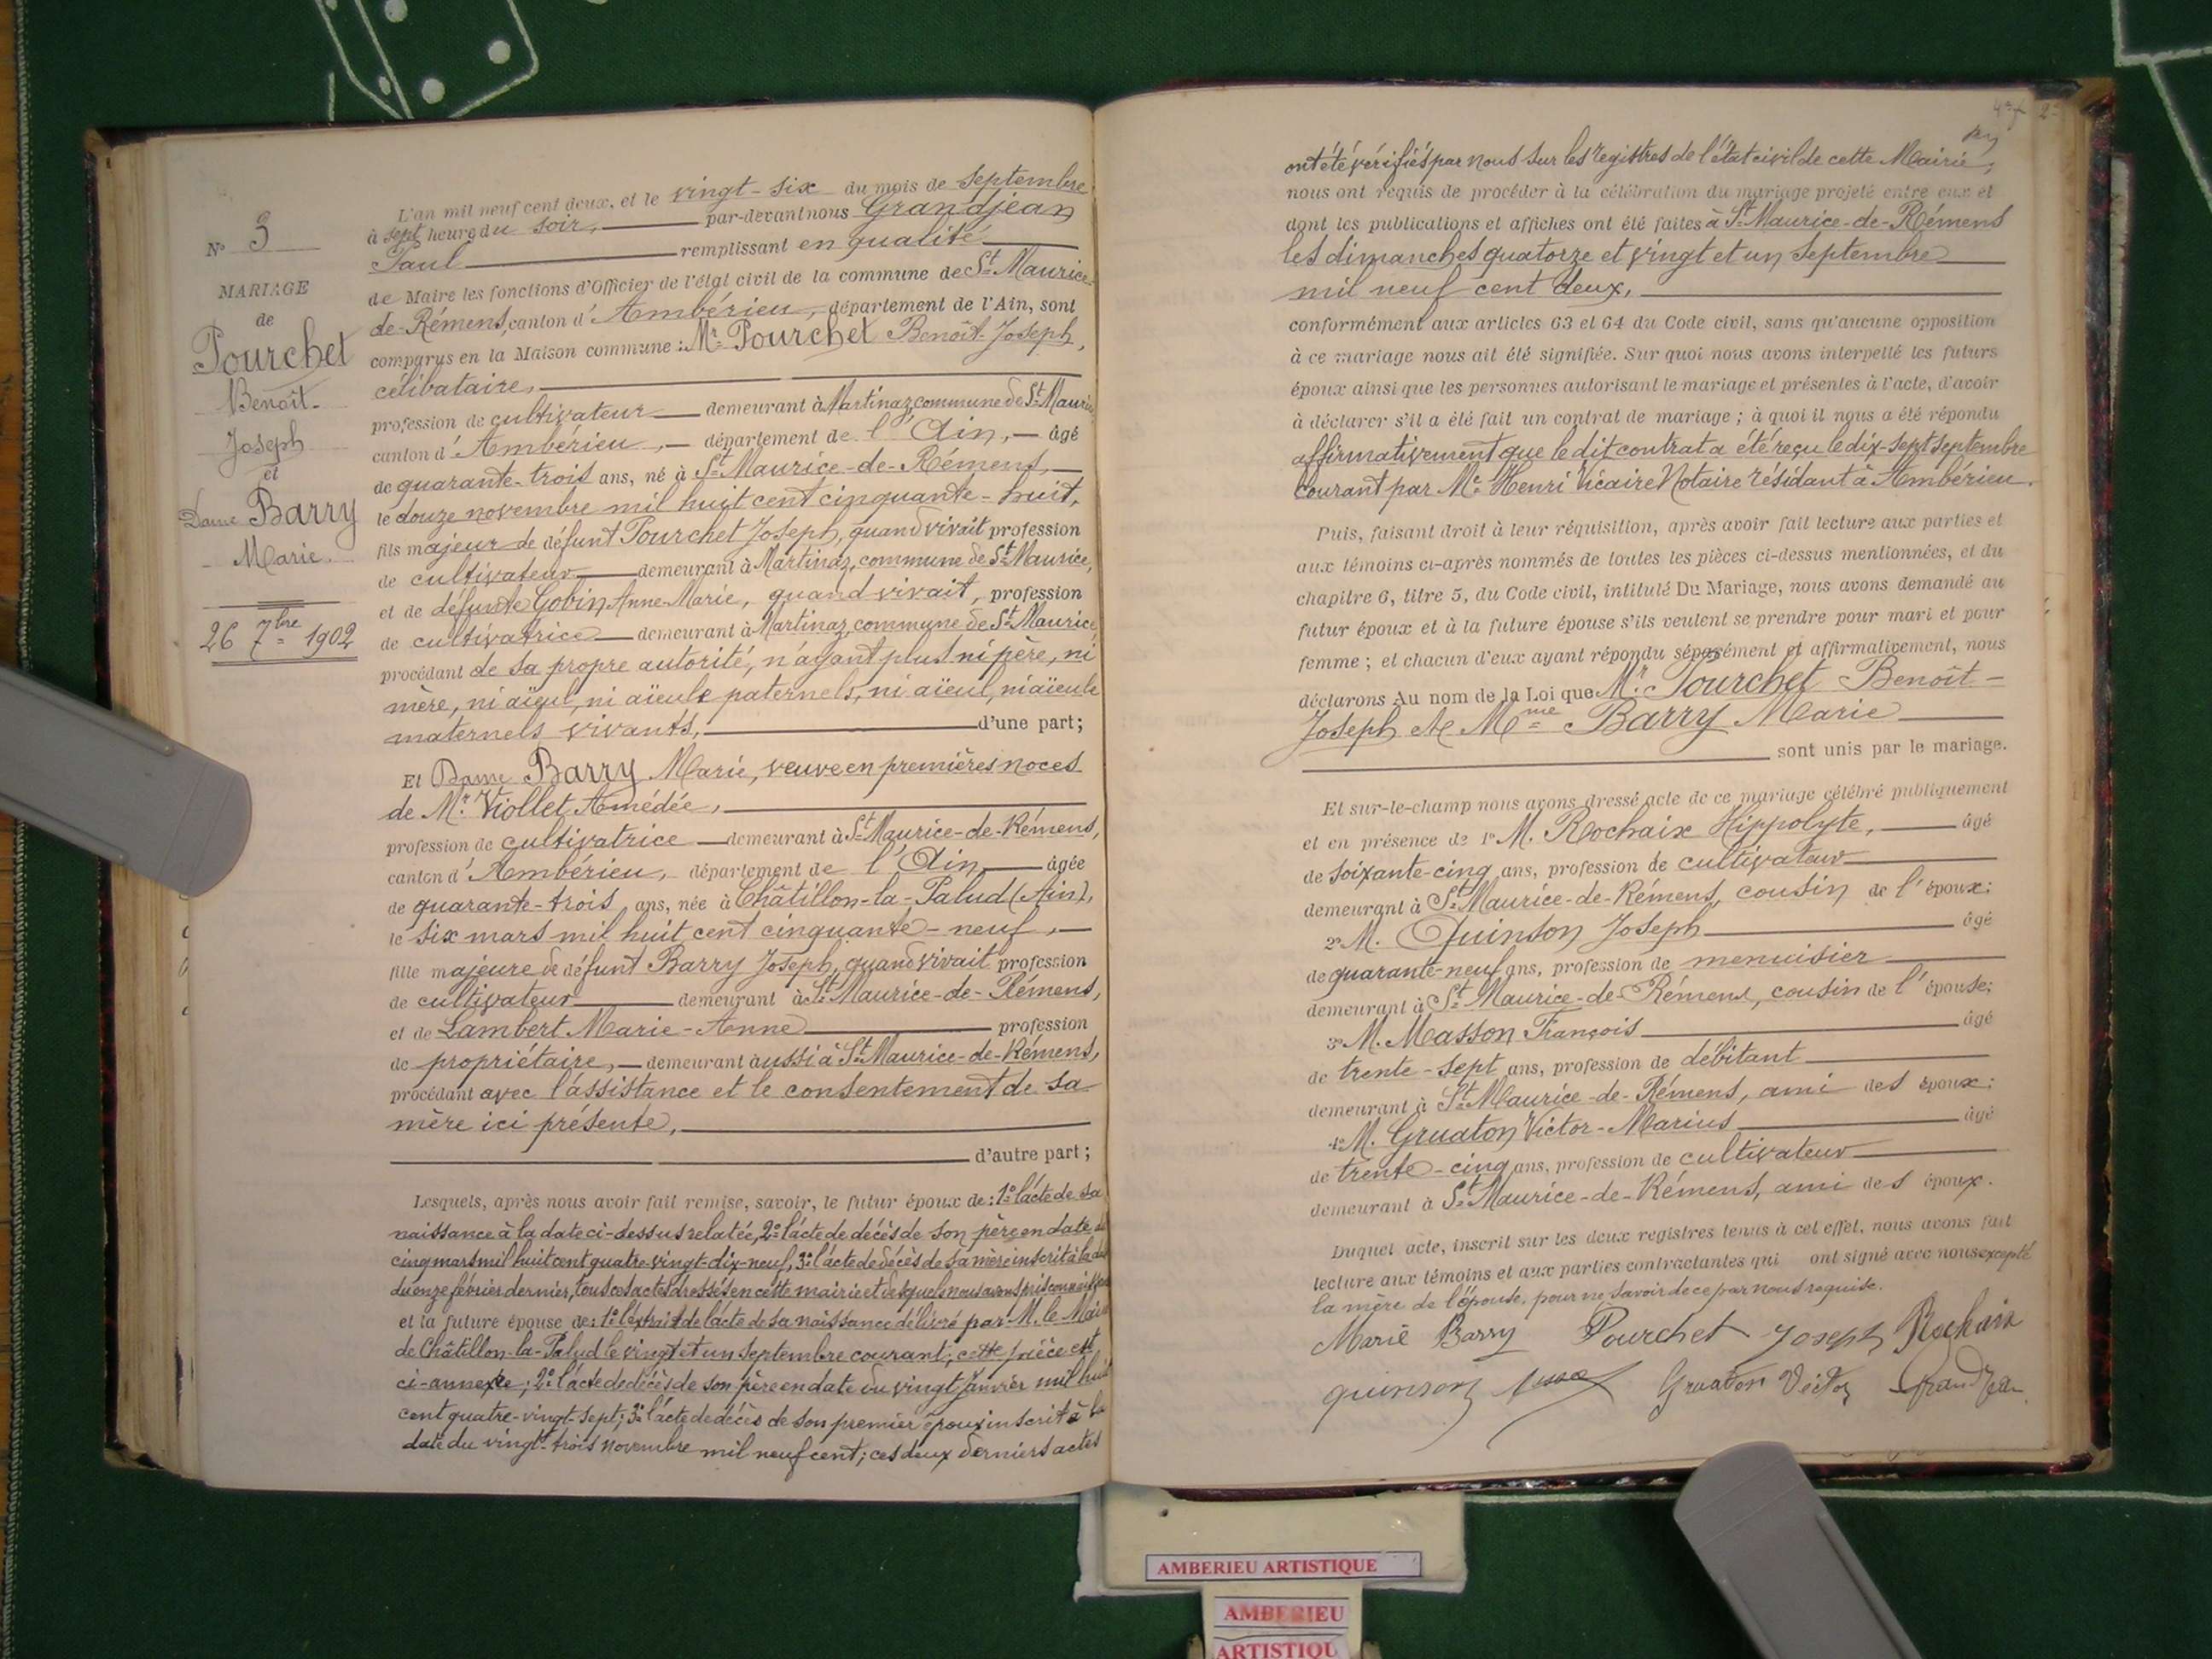 N° 3
MARIAGE
de
Pourchet
Benoit-
Joseph
et
Dame Barry
Marie.
26 7bre 1902
L'an mil neuf cent deux, et le vingt-six du mois de septembre
à sept heures du soir, par-devant nous Grandjean
Paul remplissant en qualité
de Maire les fonctions d'Officier de l'état civil de la commune de St Maurice-
de-Rémens, canton d'Ambérieu, département de l'Ain, sont
comparus en la Maison commune : Mr Pourchet Benoît-Joseph,
célibataire,
profession de cultivateur demeurant à Martinaz, commune de St Maurice
canton d'Ambérieu, département de l'Ain, âgé
de quarante-trois ans, né à St Maurice-de-Rémens,
le douze novembre mil huit cent cinquante-huit,
fils majeur de défunt Pourchet Joseph, quand vivait profession
de cultivateur demeurant à Martinaz, commune de St Maurice,
et de défunte Gobin Anne-Marie, quand vivait, profession
de cultivatrice demeurant à Martinaz, commune de St Maurice
procédant de sa propre autorité, n'ayant plus ni père, ni
mère, ni aïeul, ni aïeule paternels, ni aïeul, ni aïeule
maternels vivants, d'une part;
Et Dame Barry Marie, veuve en premières noces
de Mr Viollet Amédée,
profession de cultivatrice demeurant à St Maurice-de-Rémens,
canton d'Ambérieu, département de l'Ain âgée
de quarante-trois ans, née à Châtillon-la-Palud (Ain),
le six mars mil huit cent cinquante-neuf,
fille majeure de défunt Barry Joseph, quand vivait profession
de cultivateur demeurant à St Maurice-de-Rémens,
et de Lambert Marie-Anne profession
de propriétaire, demeurant aussi à St Maurice-de-Rémens,
procédant avec l'assistance et le consentement de sa
mère ici présente,
d'autre part;
Lesquels, après nous avoir fait remise, savoir, le futur époux de : 1° l'acte de sa
naissance à la date ci-dessus relatée, 2° l'acte de décès de son père en date du
cinq mars mil huit cent quatre-vingt-dix-neuf, 3° l'acte de décès de sa mère inscrit à la date
du onze février dernier, tous ces actes dressés en cette mairie et desquels nous avons pris connaissance
et la future épouse de : 1° l'extrait de l'acte de sa naissance délivré par M. le Maire
de Châtillon-la-Palud le vingt et un septembre courant; cette pièce est
ci-annexée; 2° l'acte de décès de son père en date du vingt janvier mil huit
cent quatre-vingt-sept; 3° l'acte de décès de son premier époux inscrit à la
date du vingt-trois novembre mil neuf cent; ces deux derniers actes
ont été vérifiés par nous sur les registres de l'état civil de cette Mairie,
nous ont requis de procéder à la célébration du mariage projeté entre eux et
dont les publications et affiches ont été faites à St Maurice-de-Rémens
les dimanches quatorze et vingt et un septembre
mil neuf cent deux,
conformément aux articles 63 et 64 du Code civil, sans qu'aucune opposition
à ce mariage nous ait été signifiée. Sur quoi nous avons interpellé les futurs
époux ainsi que les personnes autorisant le mariage et présentes à l'acte, d'avoir
à déclarer s'il a été fait un contrat de mariage ; à quoi il nous a été répondu
affirmativement que le dit contrat a été reçu le dix-sept septembre
courant par Me Henri Vicaire Notaire résidant à Ambérieu.
Puis, faisant droit à leur réquisition, après avoir fait lecture aux parties et
aux témoins ci-après nommés de toutes les pièces ci-dessus mentionnées, et du
chapitre 6, titre 5, du Code civil, intitulé Du Mariage, nous avons demandé au
futur époux et à la future épouse s'ils veulent se prendre pour mari et pour
femme ; et chacun d'eux ayant répondu séparément et affirmativement, nous
déclarons Au nom de la Loi que Mr Pourchet Benoît-
Joseph et Mme Barry Marie
sont unis par le mariage.
Et sur-le-champ nous avons dressé acte de ce mariage célébré publiquement
et en présence de 1° M. Rochaix Hippolyte, âgé
de soixante-cinq ans, profession de cultivateur
demeurant à St Maurice-de-Rémens, cousin de l'époux;
2° M. Quinson Joseph âgé
de quarante-neuf ans, profession de menuisier
demeurant à St Maurice-de-Rémens, cousin de l'épouse;
3° M. Masson François âgé
de trente-sept ans, profession de débitant
demeurant à St Maurice-de-Rémens, ami des époux;
4° M. Gruaton Victor-Marius âgé
de trente-cinq ans, profession de cultivateur
demeurant à St Maurice-de-Rémens, ami des époux.
Duquel acte, inscrit sur les deux registres tenus à cet effet, nous avons fait
lecture aux témoins et aux parties contractantes qui ont signé avec nous excepté
la mère de l'épouse, pour ne savoir de ce par nous requise.
Marie Barry Pourchet Joseph Rochaix
quinson Gruaton Victor Grandjean
AMBERIEU ARTISTIQUE
AMBERIEU
ARTISTIQU